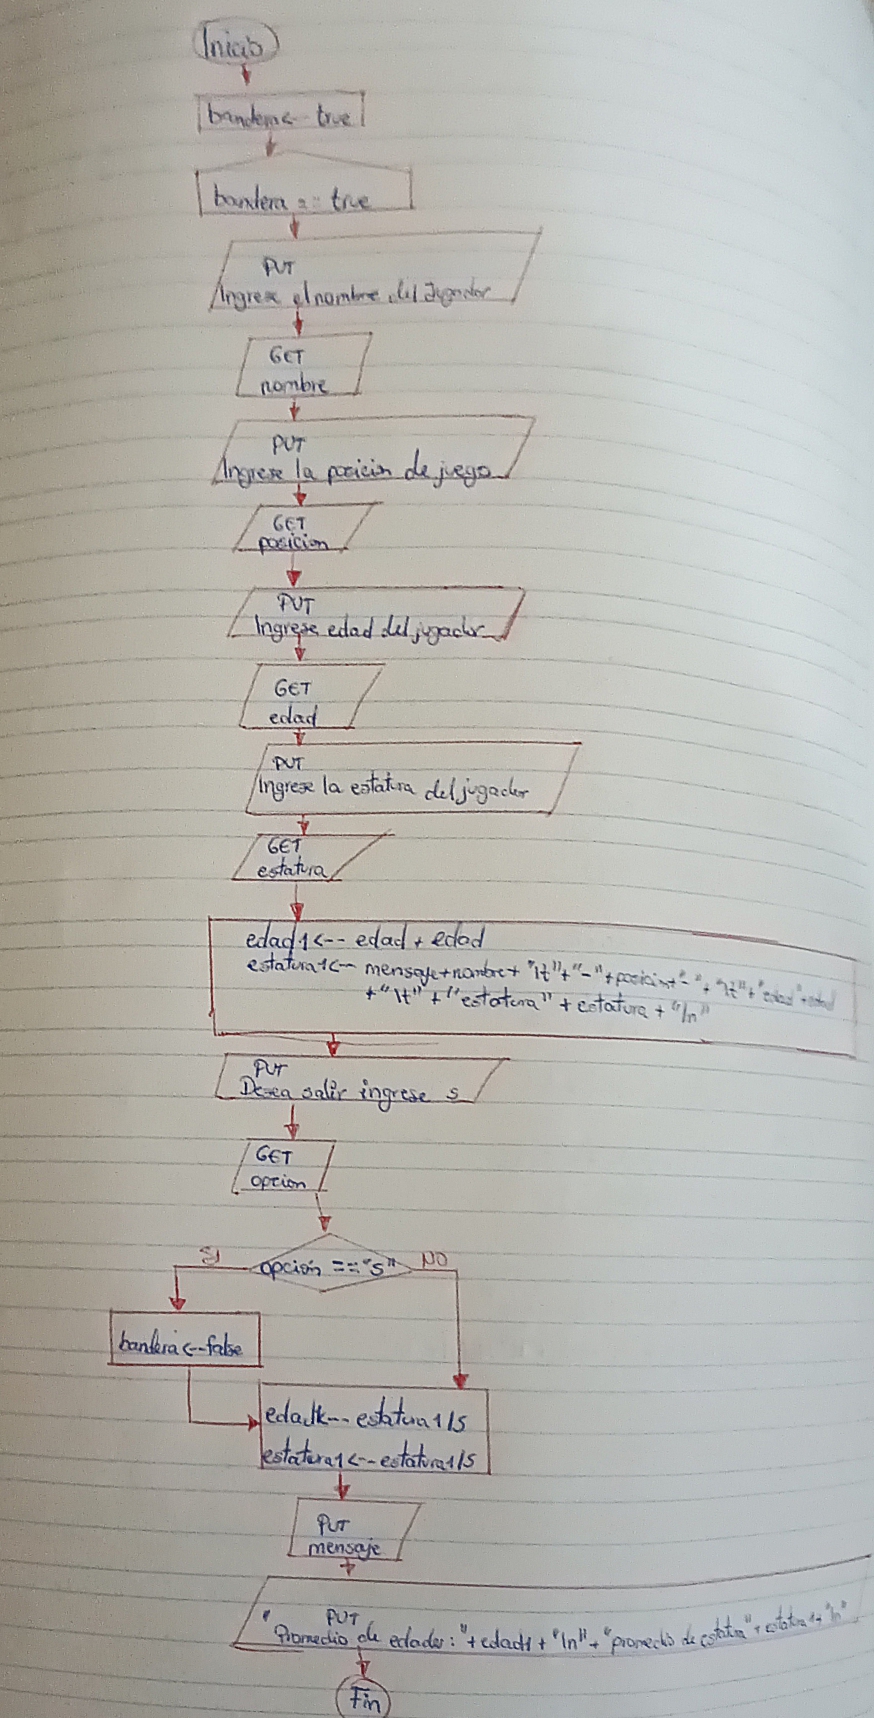 Inicio
bandera <-- true
bandera == true
PUT
Ingrese el nombre del Jugador
GET
nombre
PUT
Ingrese la posicion de juego
GET
posicion
PUT
Ingrese edad del jugador
GET
edad
PUT
Ingrese la estatura del jugador
GET
estatura
edad1 <-- edad + edad
estatura1 <-- mensaje + nombre + "\t" + "-" + posicion + "-" + "\t" + "edad" + edad
+ "\t" + "estatura" + estatura + "/n"
PUT
Desea salir ingrese s
GET
opcion
SI opción == "s" NO
bandera <-- false
edad1 <-- estatura1/5
estatura1 <-- estatura1/5
PUT
mensaje
PUT
"Promedio de edades: " + edad1 + "\n" + "promedio de estatura" + estatura1 + "\n"
Fin